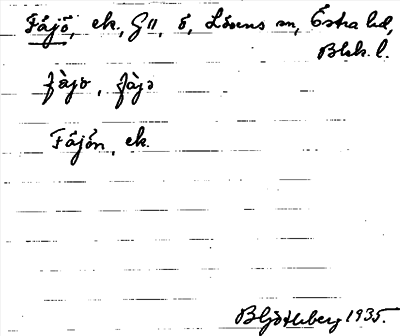 Fåjö, ek, G11, ö, Lösens sn, Östra hd,
Blek. l.
fàjə, fàjə
Fåjön, ek.
B Hjöthberg 1935.